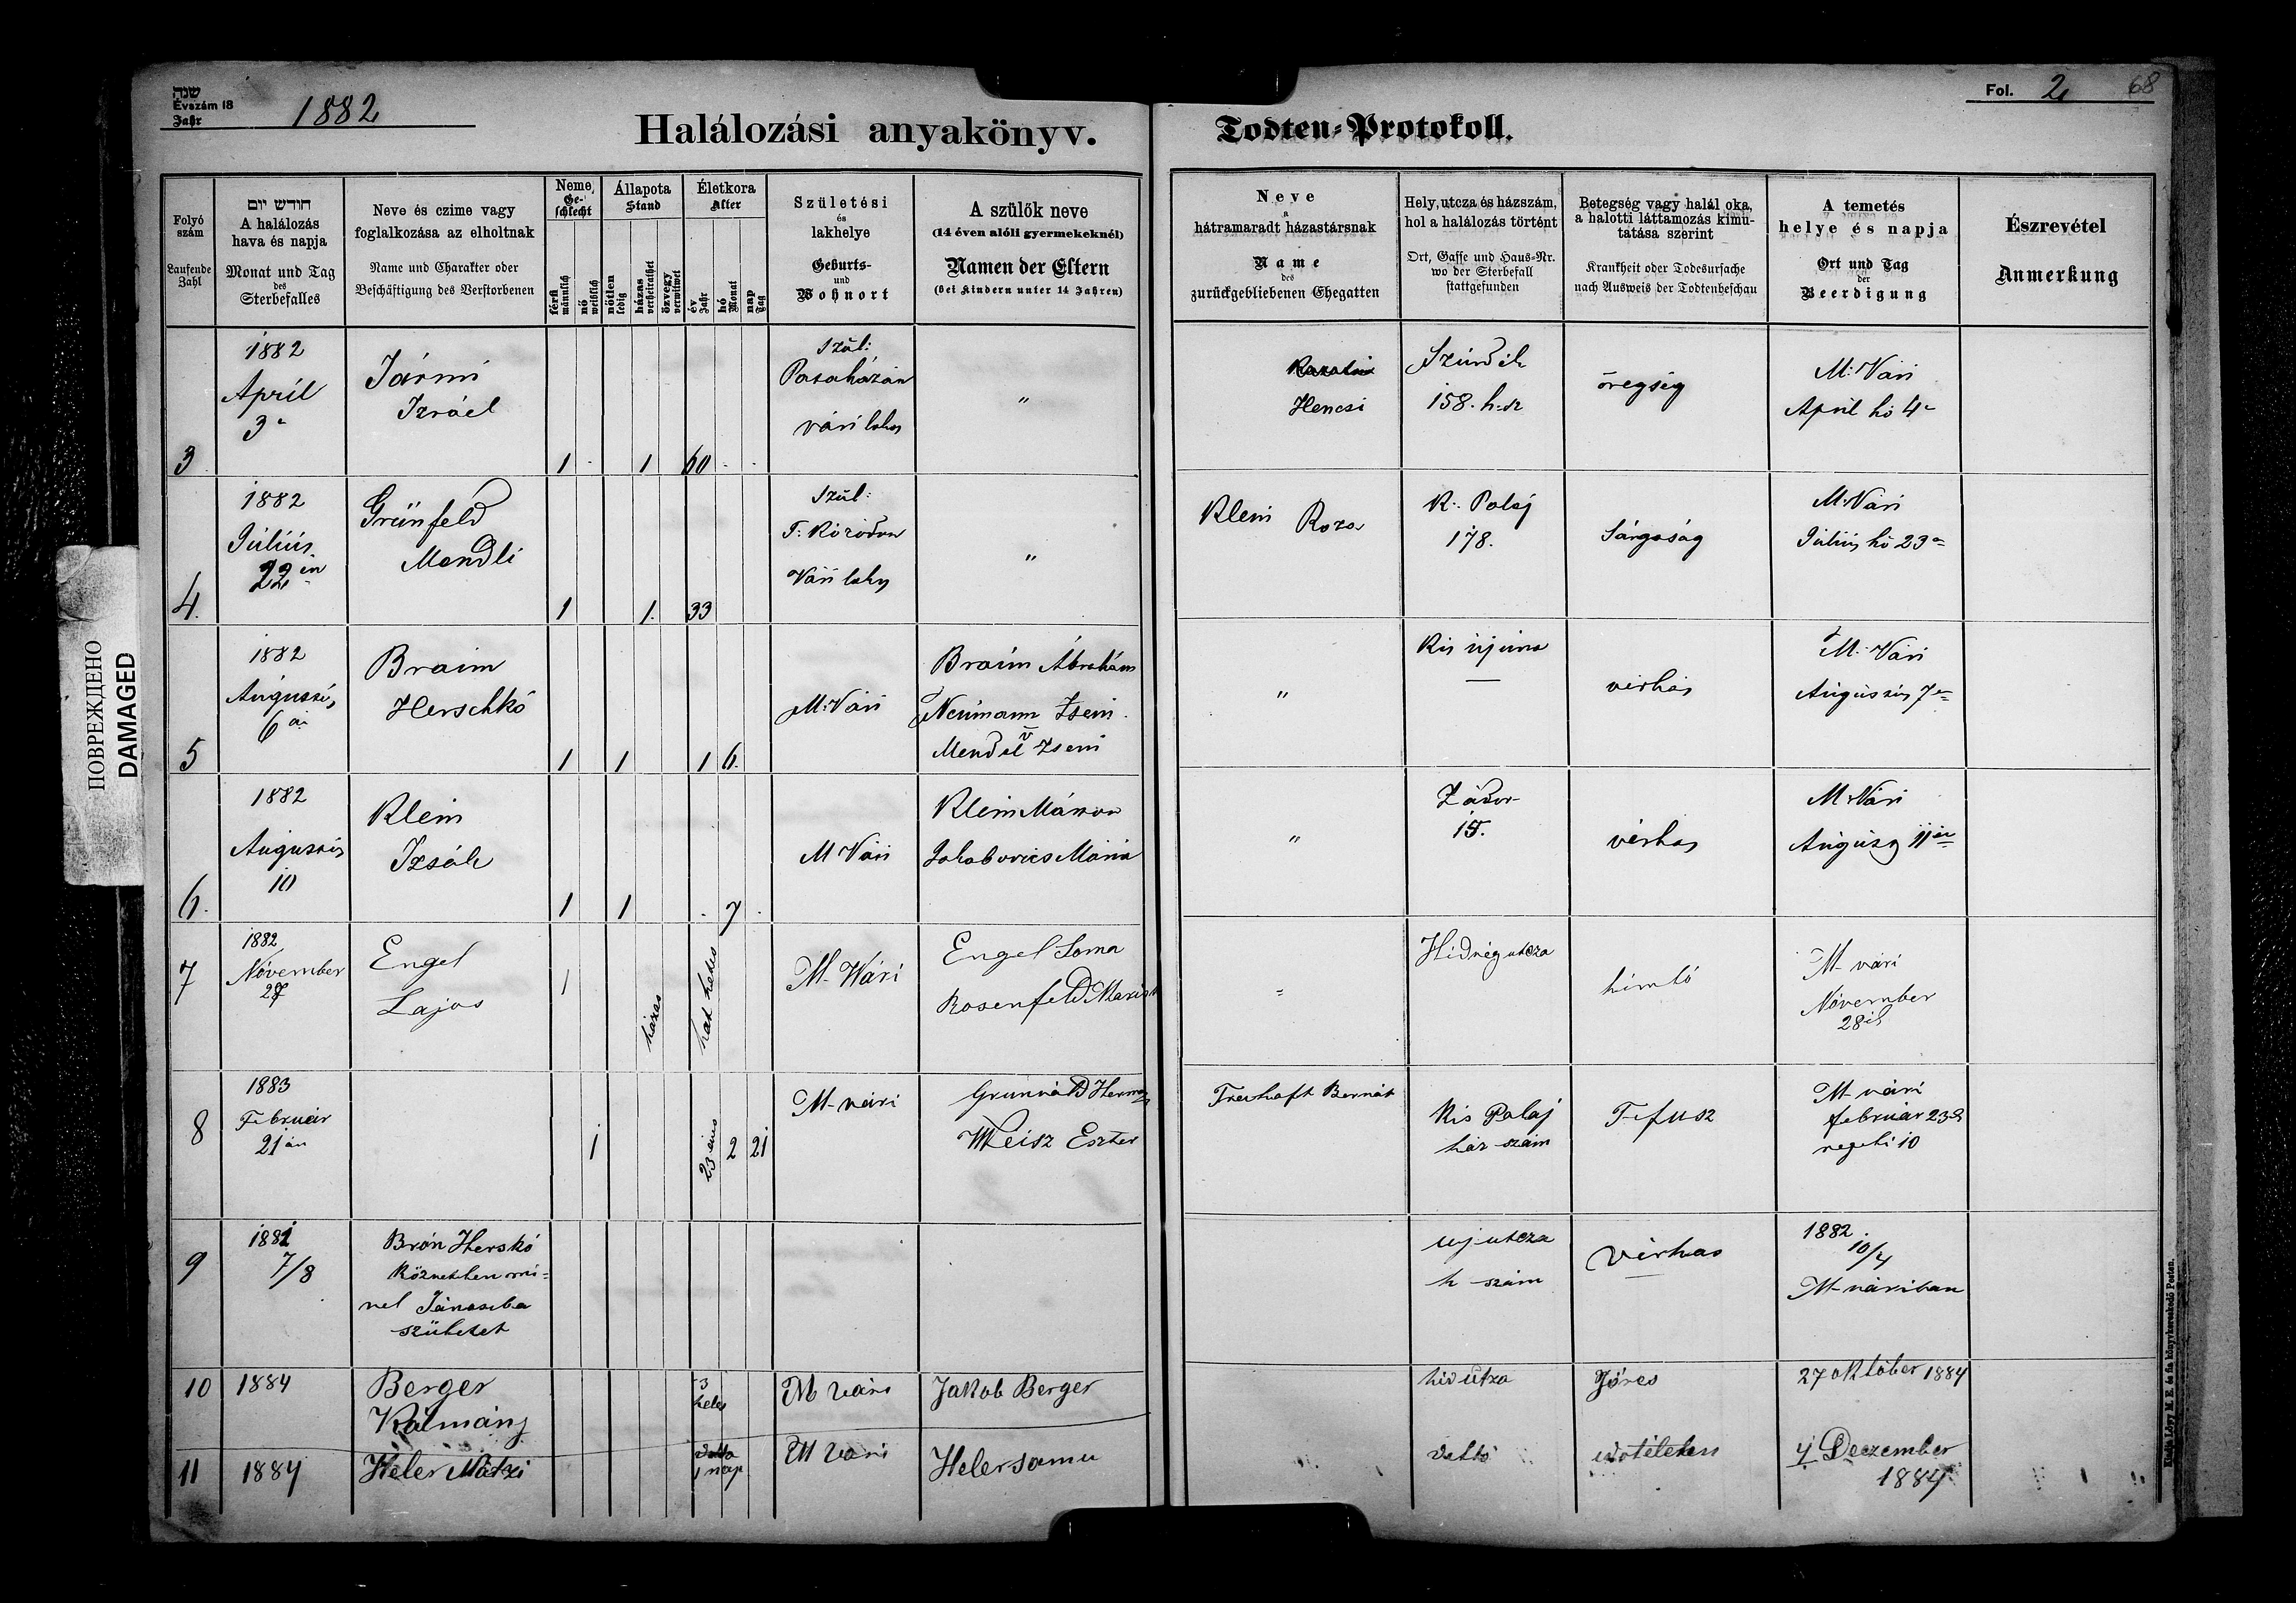 שנה
Évszám 18
Jahr
1882
Halálozási anyakönyv.
Todten-Protokoll.
Fol. 2
68
Folyó
szám
Laufende
Zahl
חודש יום
A halálozás
hava és napja
Monat und Tag
des
Sterbefalles
Neve és czime vagy
foglalkozása az elholtnak
Name und Charakter oder
Beschäftigung des Verstorbenen
Neme
Ge-
schlecht
férfi
männlich
nő
weiblich
Állapota
Stand
nőtlen
ledig
házas
verheirathet
özvegy
verwitwet
Életkora
Alter
év
Jahr
hó
Monat
nap
Tag
Születési
és
lakhelye
Geburts-
und
Wohnort
A szülők neve
(14 éven alóli gyermekeknél)
Namen der Eltern
(bei Kindern unter 14 Jahren)
Neve
a
hátramaradt házastársnak
Name
des
zurückgebliebenen Ehegatten
Hely, utcza és házszám,
hol a halálozás történt
Ort, Gasse und Haus-Nr.
wo der Sterbefall
stattgefunden
Betegség vagy halál oka,
a halotti láttamozás kimu-
tatása szerint
Krankheit oder Todesursache
nach Ausweis der Todtenbeschau
A temetés
helye és napja
Ort und Tag
der
Beerdigung
Észrevétel
Anmerkung
3
1882
Április
3
Jármi
Izráel
1 1 60
Szül:
Pasaházán
vári lakos
"
Hencsi
158. h. sz
öregség
M: Vári
April hó 4
4.
1882
Július
22 én
Grünfeld
Mendli
1 1. 33
Szül:
Vári lakos
"
Klein Roza
K: Palaj
178.
Sárgaság
M: Vári
Július hó 23
5
1882
Augusztus
6 án
Braun
Herschkó
1 1 1 6.
M: Vári
Braun Ábrahám
Neumann Zseni
Mendel Zseni
"
Kis új utca
vérhas
M: Vári
Augusztus 7
6.
1882
Augusztus
10
Klein
Izsák
1 1 7
M Vári
Klein Márton
Jakabovics Mária
"
15.
vérhas
M: Vári
August 11 én
7
1882
Nóvember
27
Engel
Lajos
1
házas
hat hetes
M- Vári
Engel Soma
Rosenfeld Mari
Hidvég utcza
himló
M- vári
Nóvember
28
8
1883
Február
21 án
1
23 éves 2 21
M- vári
Grunváld Herman
Weisz Eszter
Treuhaft Bernát
Kis Palaj
ház szám
Tifusz
M- vári
február 23
regeli 10
9
1882
7/8
Brón Herskó
szülelet
uj utcza
h szám
vérhas
1882.
10/4
M- váriban
10
1884
Berger
Kálmány
3
heles
M vári
Jakob Berger
hid útza
27 október 1884
11
1884
Heler
1 nap
M vári
Heler samu
4 Deczember
1884
ПОВРЕЖДЕНО
DAMAGED